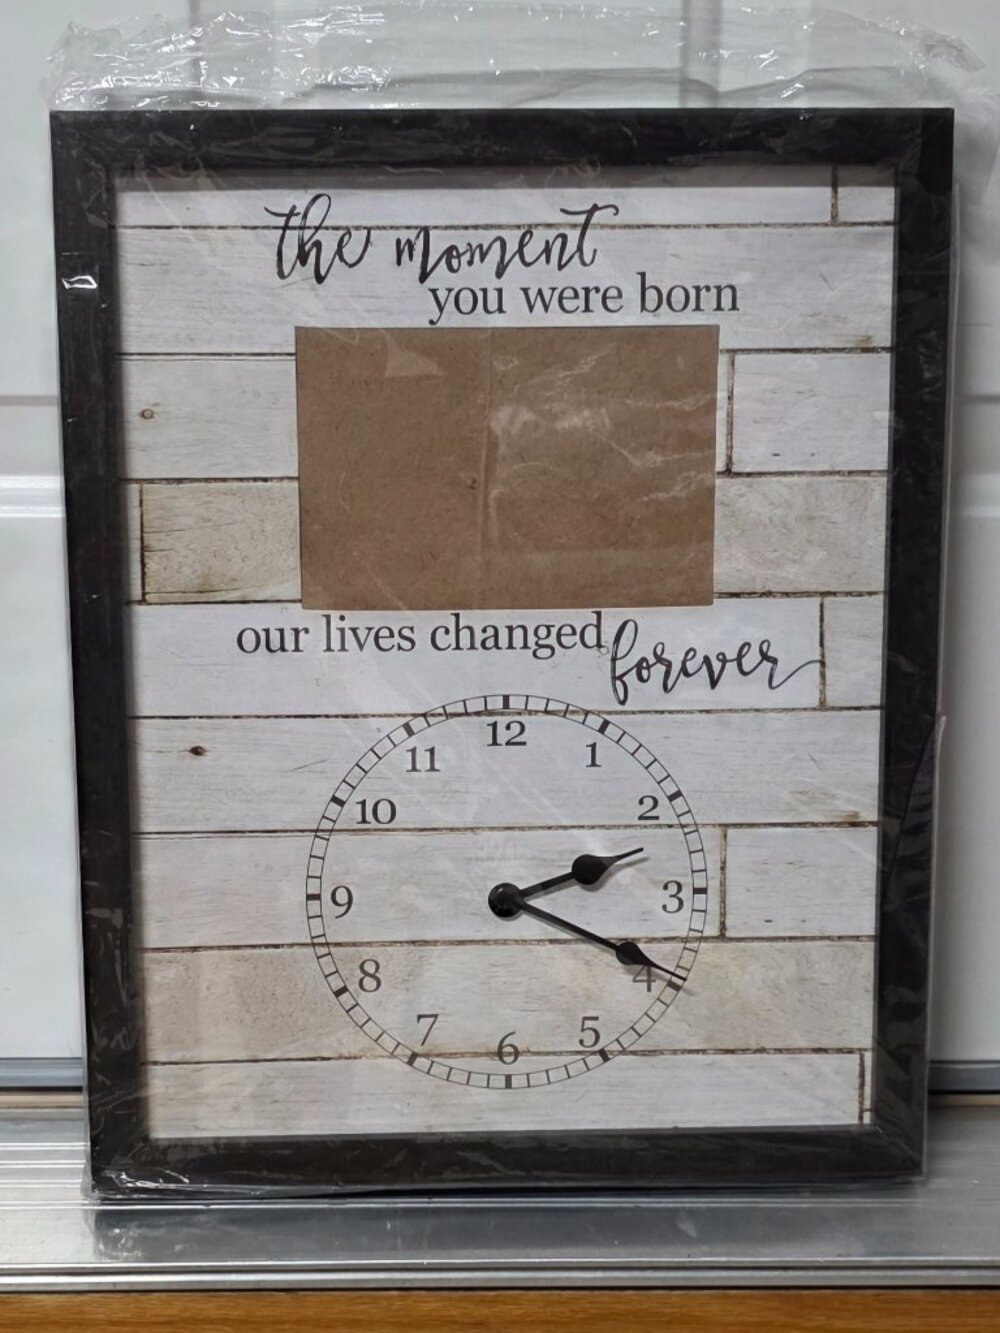 the moment
you were born
our lives changed forever
12
11 1
10 2
9 3
8 4
7 5
6